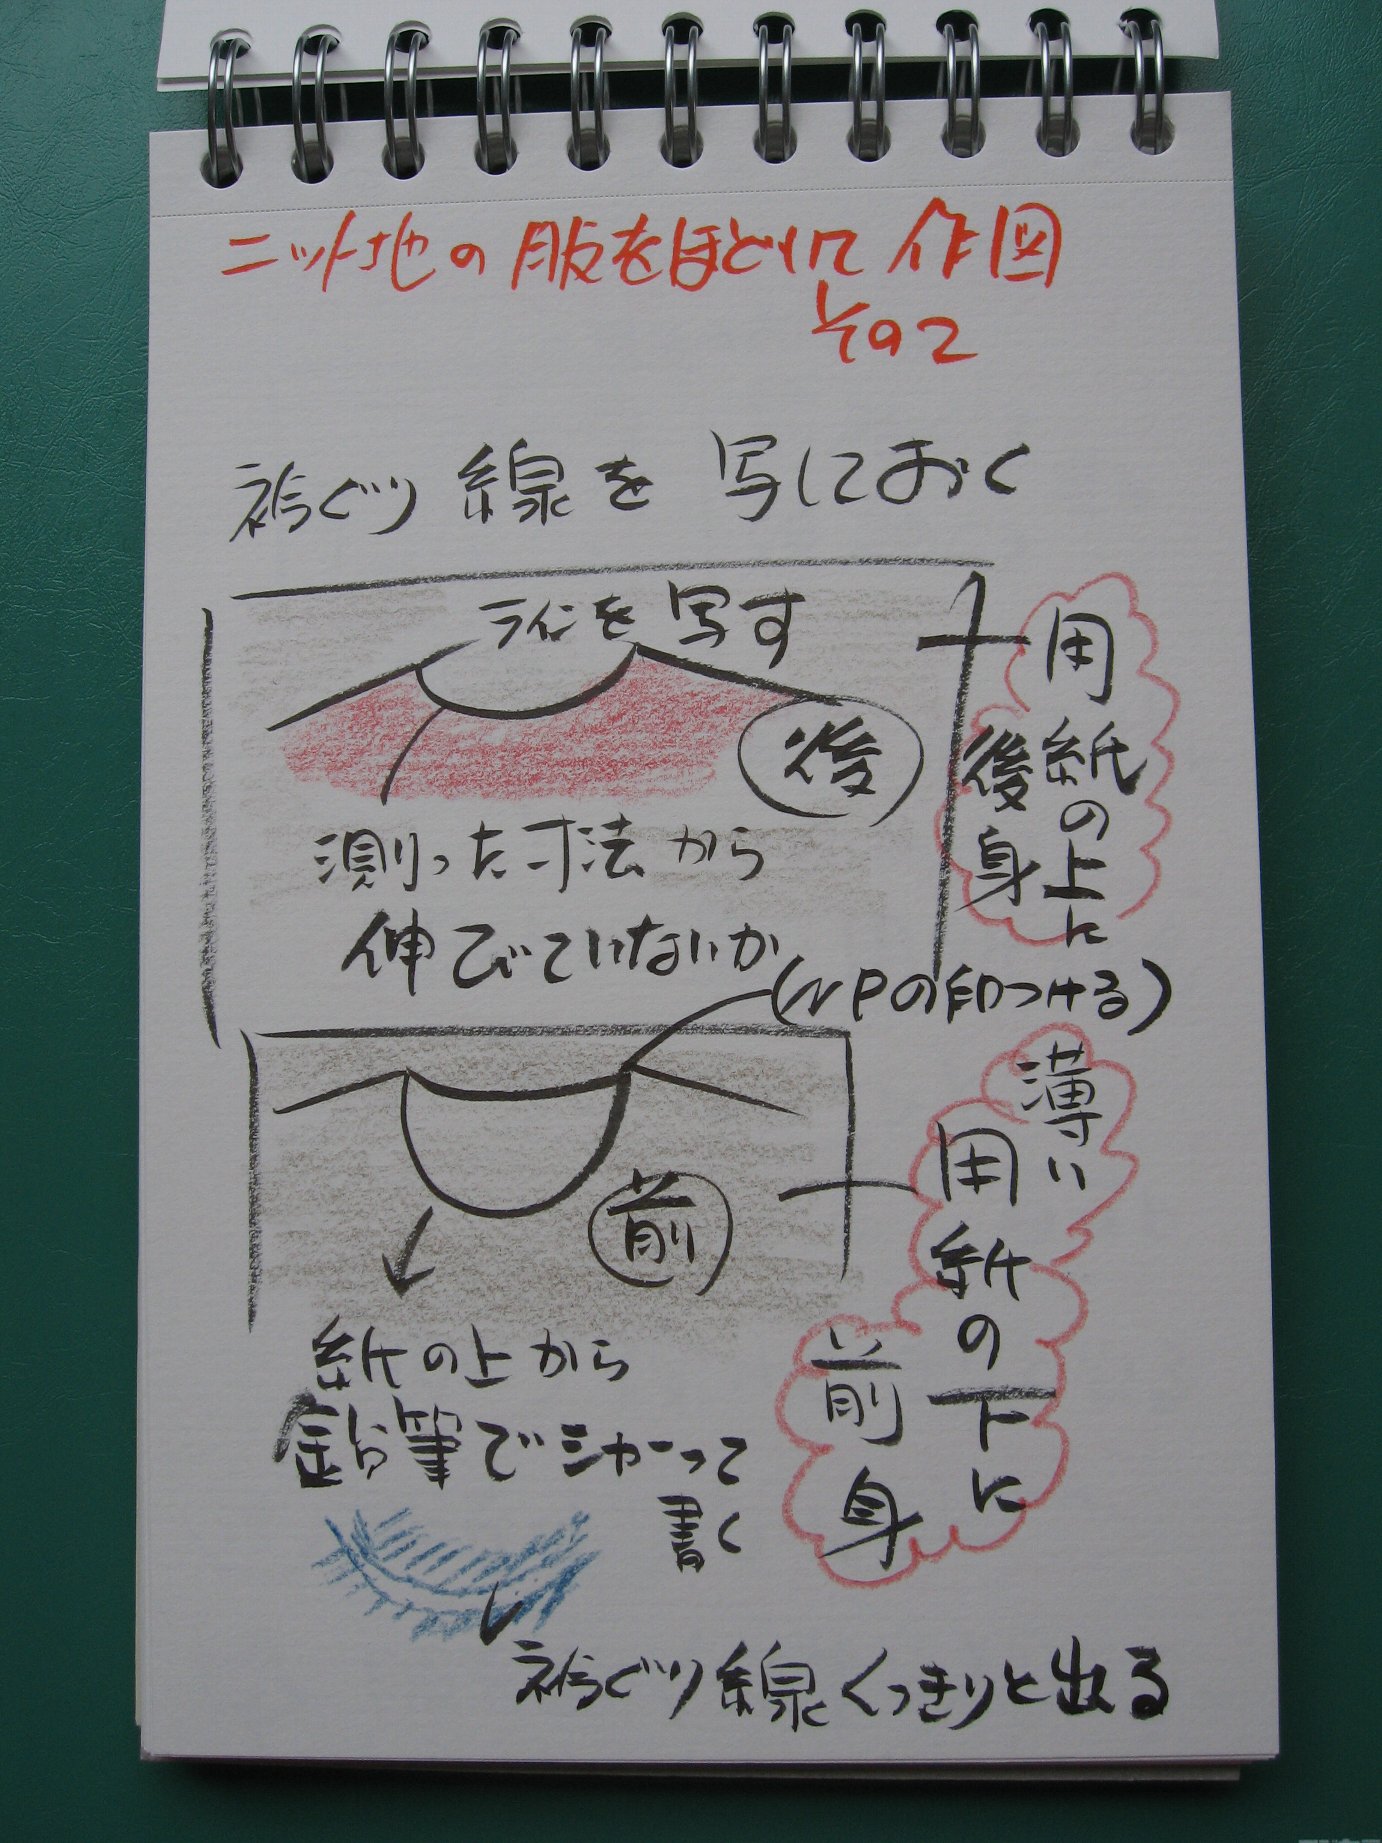 ニット地の服をほどいて作図
その2
衿ぐり線を写しておく
ラインを写す
後
用紙の上に
後身
測った寸法から
伸びていないか
(NPの印つける)
前
薄い
用紙の下に
前身
紙の上から
鉛筆でシャーって
書く
衿ぐり線くっきりと出る